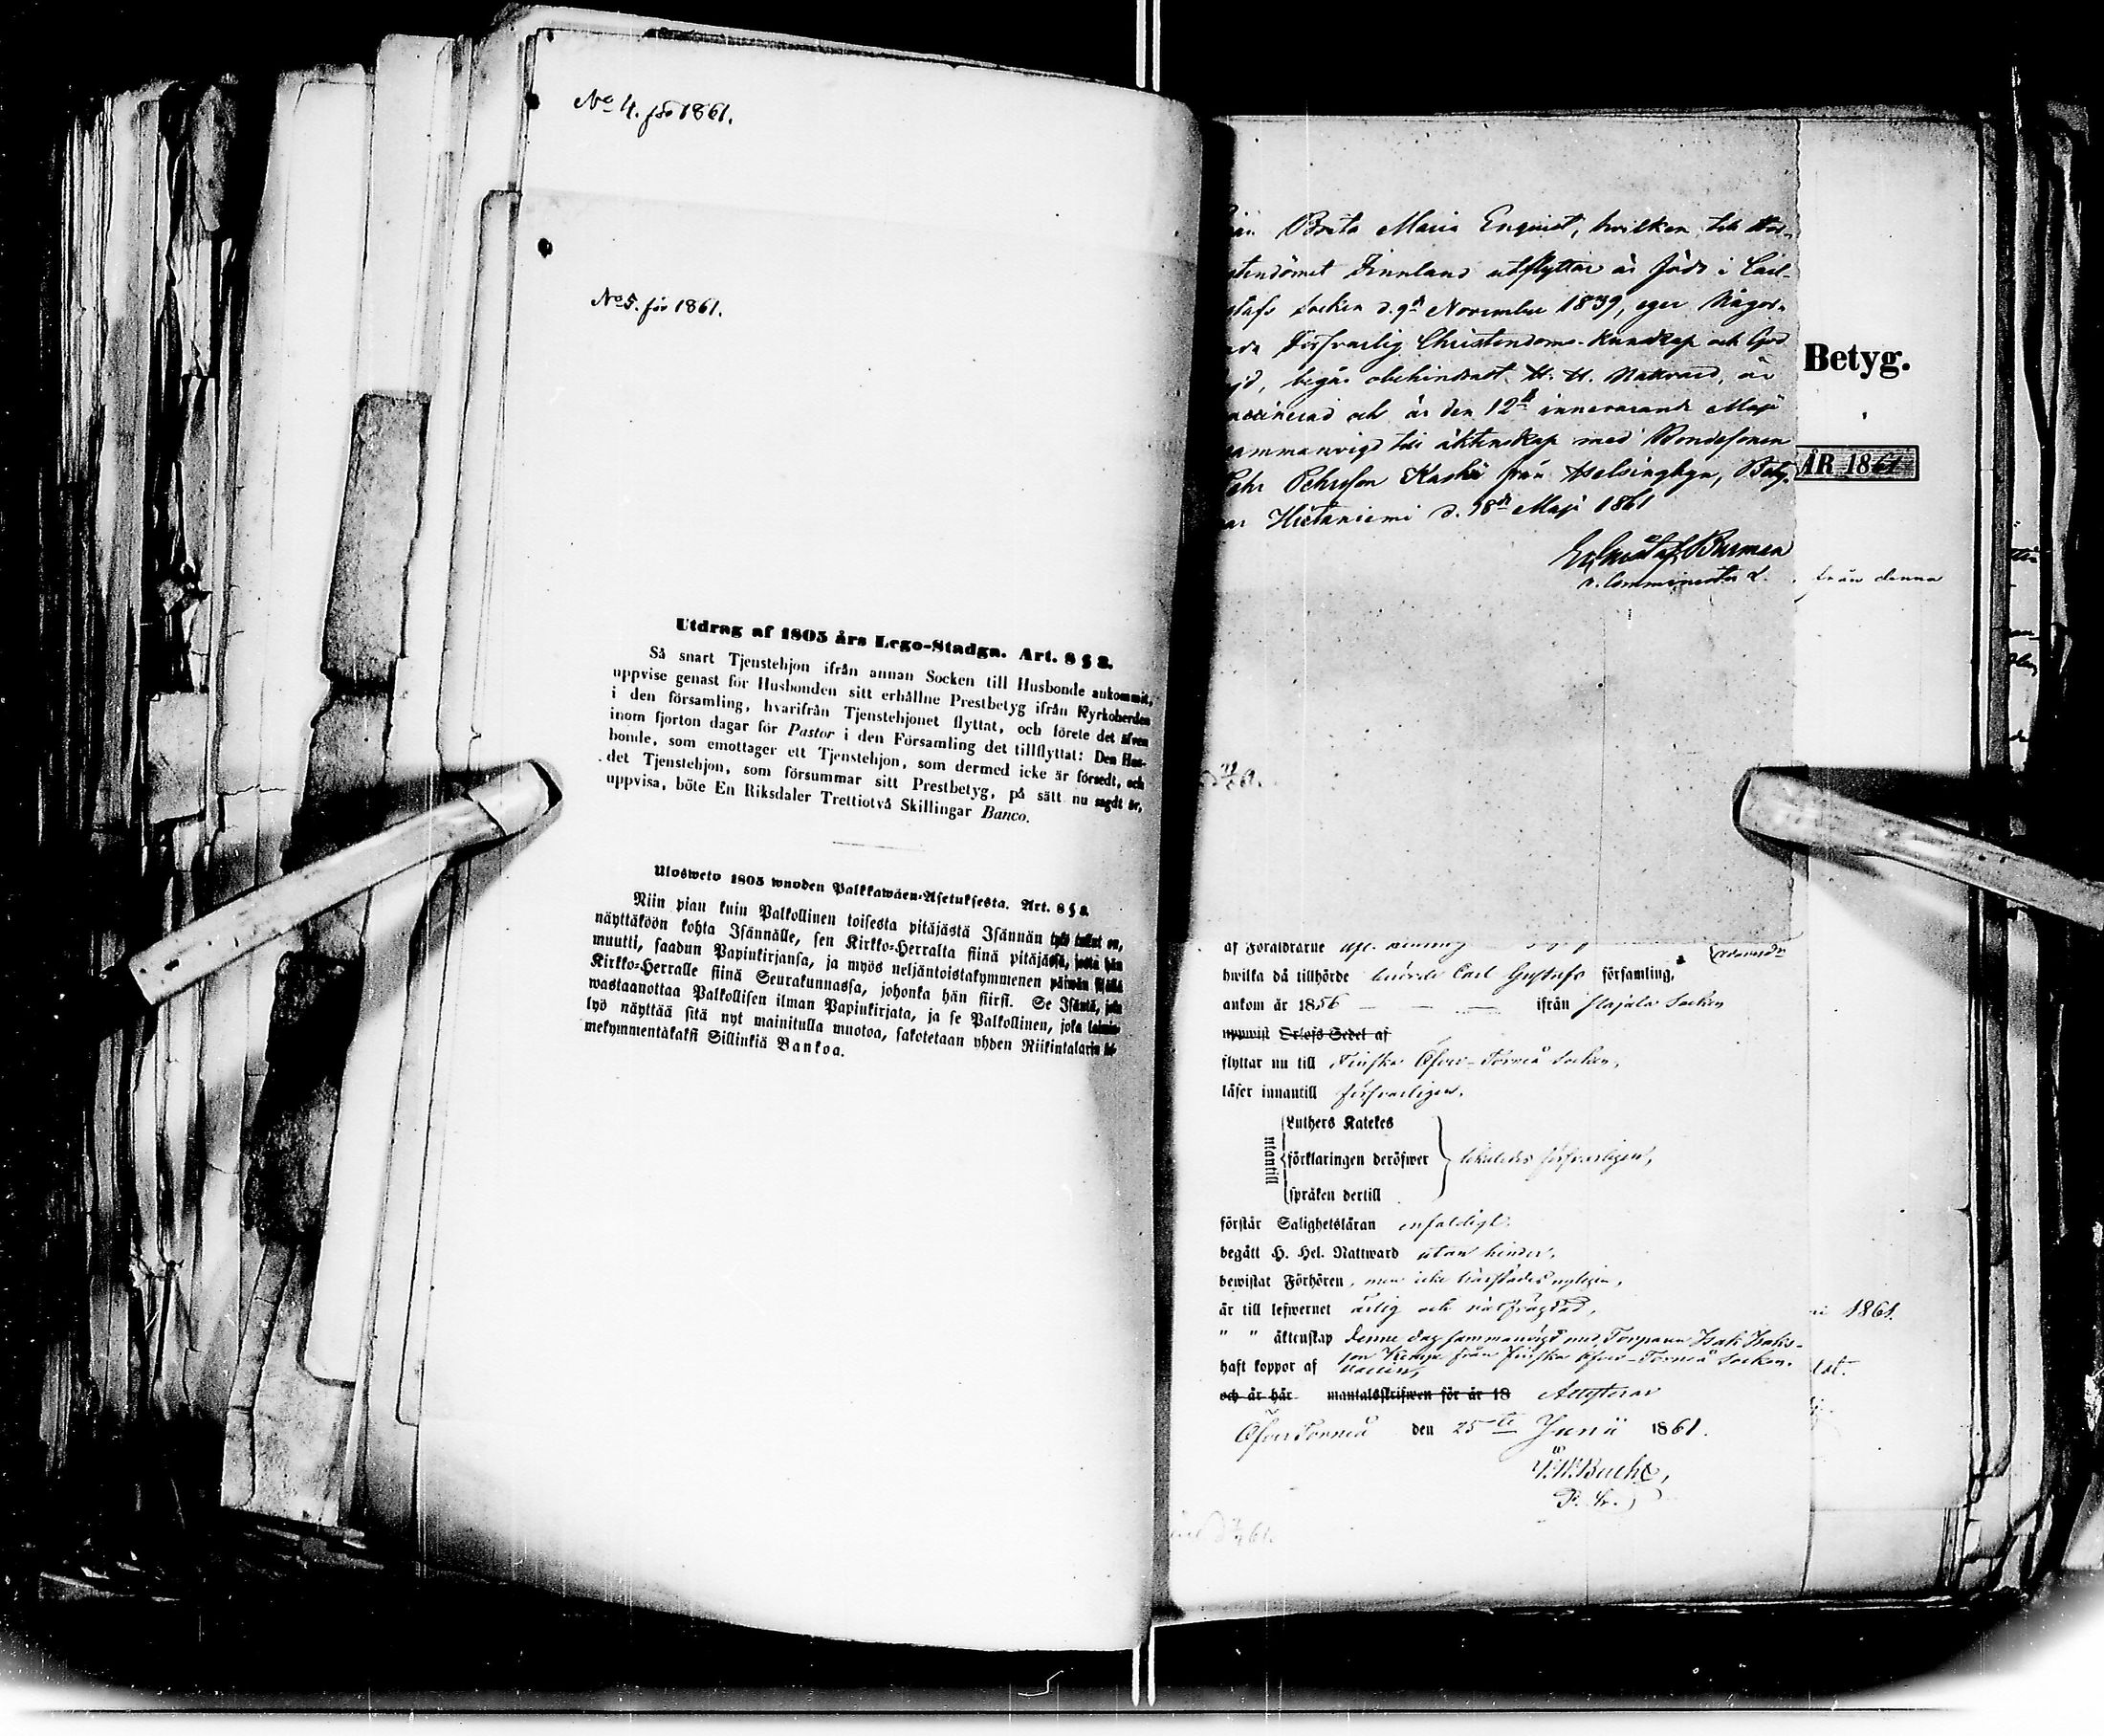 No 4. för 1861.
No 5. för 1861.
Utdrag af 1805 års Lego-Stadga. Art. 8 § 3.
Så snart Tjenstehjon ifrån annan Socken till Husbonde ankommit,
uppvise genast för Husbonden sitt erhållne Prestbetyg ifrån Kyrkoherden
i den församling, hvarifrån Tjenstehjonet flyttat, och förete det äfven
inom fjorton dagar för Pastor i den Församling det tillflyttat: Den Hus-
bonde, som emottager ett Tjenstehjon, som dermed icke är försedt, och
det Tjenstehjon, som försummar sitt Prestbetyg, på sätt nu sagdt är,
uppvisa, böte En Riksdaler Trettiotvå Skillingar Banco.
Ulosweto 1805 wuoden Palkkawäen-Asetuksesta. Art. 8 § 3.
Niin pian kuin Palkollinen toisesta pitäjästä Isännän työ tullut on,
näyttäköön kohta Isännälle, sen Kirkko-Herralta siinä pitäjässä, josta hän
muutti, saadun Papinkirjansa, ja myös neljäntoistakymmenen päiwän sisällä
Kirkko-Herralle siinä Seurakunnassa, johonka hän siirsi. Se Isäntä, joka
wastaanottaa Palkollisen ilman Papinkirjata, ja se Palkollinen, joka laimin-
lyö näyttää sitä nyt mainitulla muotoa, sakotetaan yhden Riikintalarin
mekymmentäkaksi Sillinkiä Bankoa.
Brita Maria Enquist, hvilken till Stor-
stendömet Finnland utflyttar är född i Carl
stafs socken d. 9de November 1839, eger Någor-
Försvarlig Christendoms-Kunskap och God
begår obehindradt H. H. Nattvard, är
vaccinerad och är den 12te innevarande Maji
sammanvigd till äktenskap med Bondesonen
Pehr Pehrsson Kaski från Helsingbyn, Betyg-
ar Hietaniemi d. 18de Maji 1861
Gustaf Burman
v. Comminister
Betyg.
ÅR 1861
från denna
af Föräldrarne
hwilka då tillhörde Carl Gustafs församling,
ankom år 1856 ifrån Pajala Socken
uppwist Orlofs Sedel af
flyttar nu till Finska Öfver-Torneå Socken,
läser innantill försvarligen,
utantill
Luthers Katekes
förklaringen deröfwer likaledes försvarligen,
språken dertill
förstår Salighetsläran enfaldigt.
begått H. Hel. Nattward utan hinder,
bewistat Förhören, men icke härstädes nyligen,
är till lefwernet ärlig och välfrägdad,
" " äktenskap denne dag sammanvigd med Torparen Isak Isaks-
son från finska Öfver-Torneå Socken.
haft koppor af vaccin,
och är här mantalsskrifwen för år 18 Attesterar
ÖfverTorneå den 25te Junii 1861.
Bucht,
P. L.
1861.